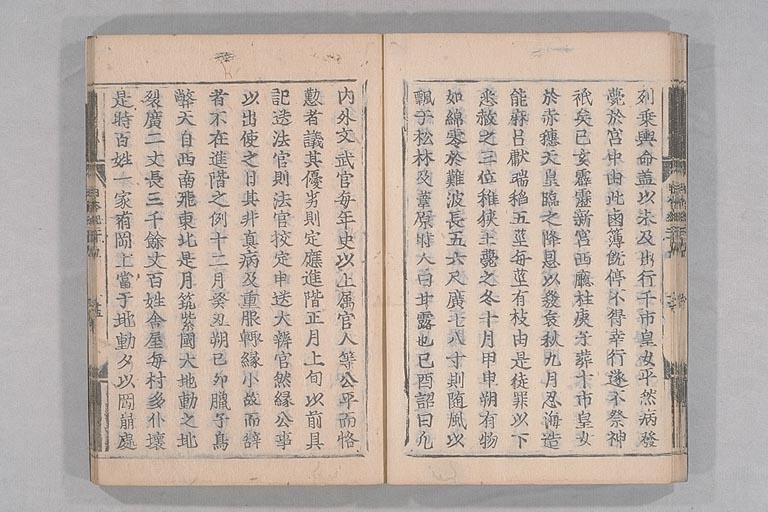 列乗輿命盖以未及出行十市皇女平然病發
薨於宮中由此鹵簿既停不得幸行遂不祭神
祇矣己亥霹靂新宮西廳柱庚子葬十市皇女
於赤穗天皇臨之降恩以發哀秋九月忍海造
能麻呂獻瑞稻五莖每莖有枝由是徒罪以下
悉赦之三位稚狹王薨之冬十月甲申朔有物
如綿零於難波長五六尺廣七八寸則随風以
飄于松林及葦原時人曰甘露也己酉詔曰凢
內外文武官每年史以上属官人等公平而恪
懃者議其優劣則定應進階正月上旬以前具
記送法官則法官挍定申送大辨官然緣公事
以出使之日其非真病及重服輙緣小故而辞
者不在進階之例十二月癸丑朔己卯臘子鳥
弊天自西南飛東北是月筑紫國大地動之地
裂廣二丈長三千餘丈百姓舎屋每村多仆壞
是時百姓一家有岡上當于地動夕以岡崩處